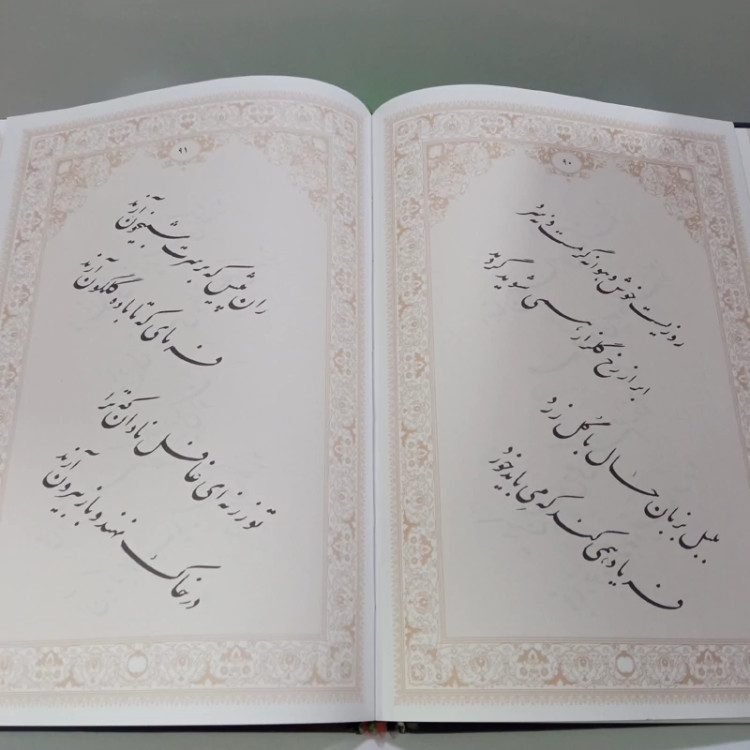 ۹۰
روزیست خوش و هوا نه گرمست و نه سرد
ابر از رخ گلزار همی شوید گرد
بلبل بزبان حال با گل زرد
فریاد همی کند که می باید خورد
۹۱
زان پیش که بر سرت شبیخون آرند
فرمای که تا باده گلگون آرند
تو زر نه ای غافل نادان که ترا
در خاک نهند و باز بیرون آرند